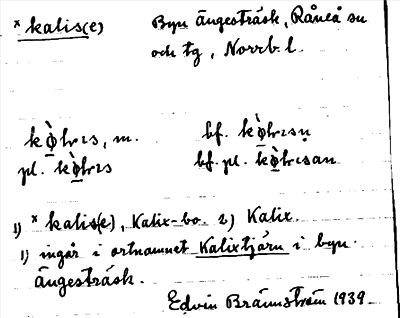 * kalis(e)
Byn Ängesträsk, Råneå sn
och tg, Norrb. l.
kò̱lııs, m.
bf. kò̱lıısn̥
pl. kò̱lııs
bf. pl. kò̱lıısan
1) * kalis(e), Kalix-bo. 2) Kalix.
1) ingår i ortnamnet Kalixtjärn i byn
Ängesträsk.
Edvin Brännström 1939